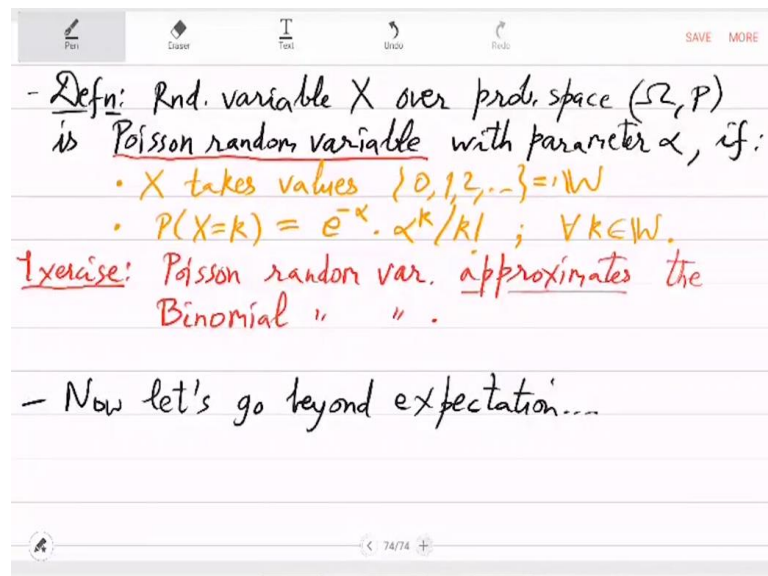 Pen Eraser Text Undo Redo SAVE MORE
- Defn: Rnd. variable X over prob. space (Ω, P)
is Poisson random variable with parameter α, if:
• X takes values {0,1,2,...}=:W
• P(X=k) = e^{-α} · α^k/k! ; ∀ k∈W.
Exercise: Poisson random var. approximates the
Binomial " " .
- Now let's go beyond expectation....
< 74/74 +